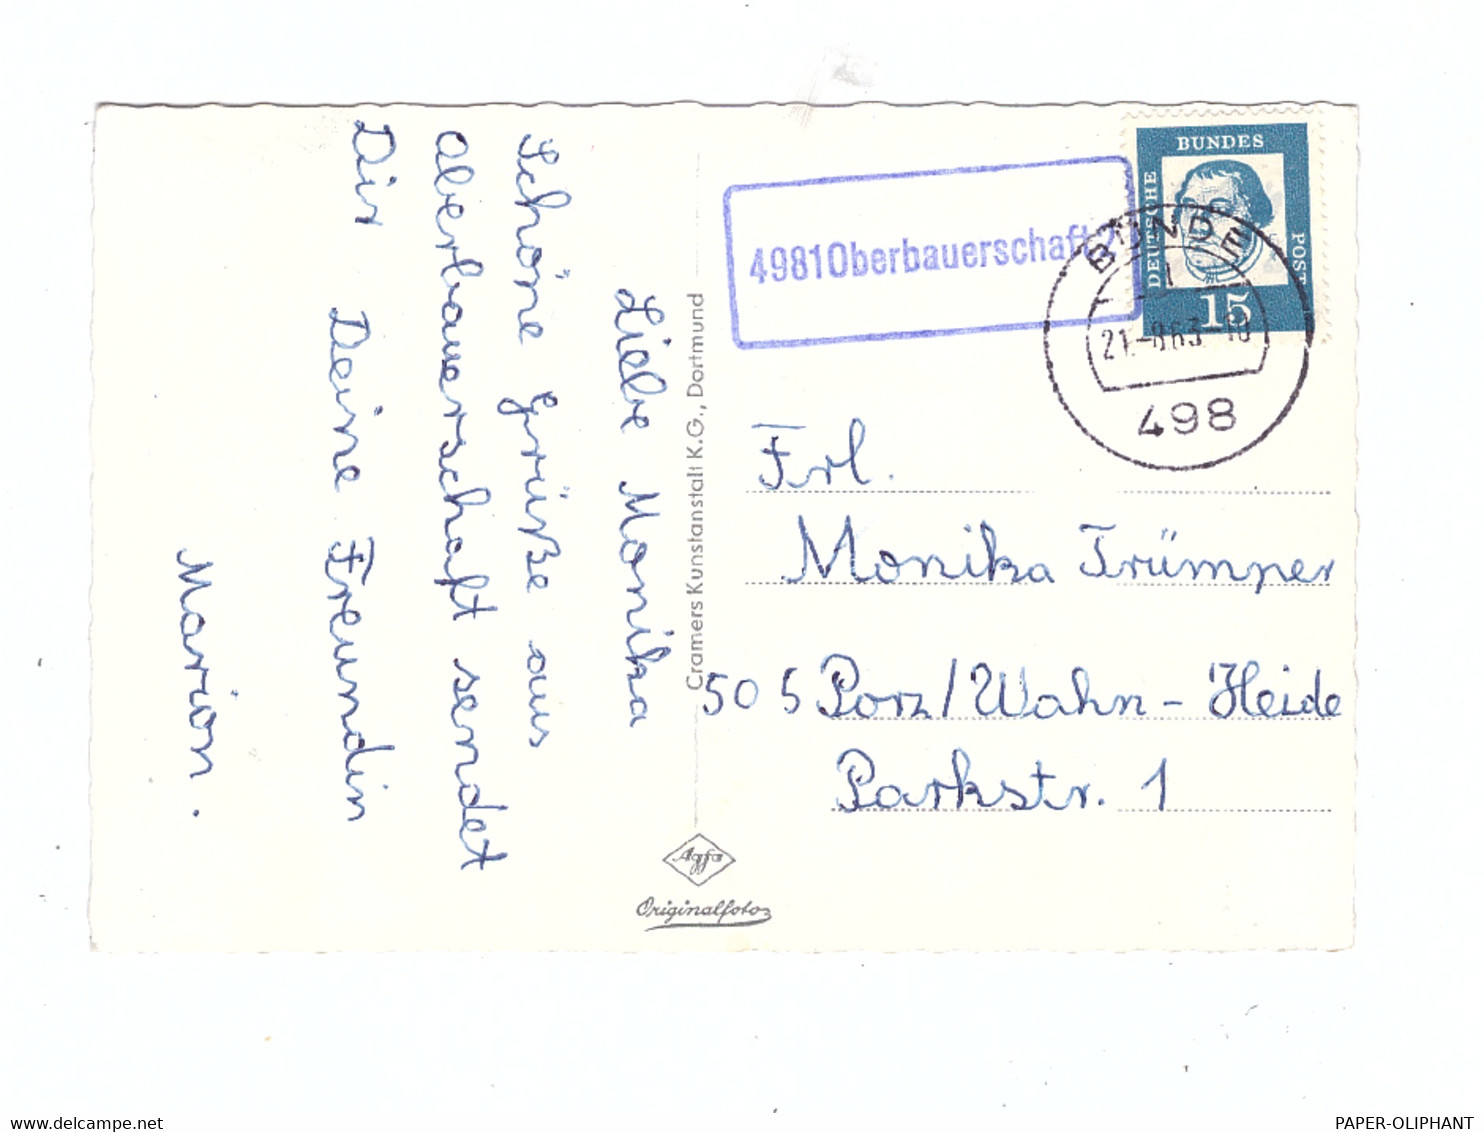 Liebe Monika
Schöne Grüße aus
Oberbauerschaft sendet
Dir Deine Freundin
Marion.
Cramers Kunstanstalt K.G., Dortmund
Agfa
Originalfoto
4981 Oberbauerschaft
DEUTSCHE
BUNDES
POST
15
BÜNDE
1
21.-8.63.-18
498
Frl.
Monika Trümper
505 Porz/Wahn-Heide
Parkstr. 1
www.delcampe.net
PAPER-OLIPHANT